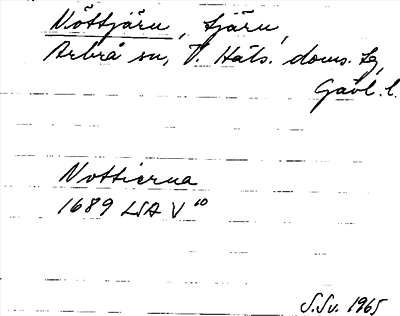 Nöttjärn, tjärn,
Arbrå sn, V. Häls. doms. tg,
Gävl. l.
Nottierna
1689 LSA V 10
S.Sv. 1965